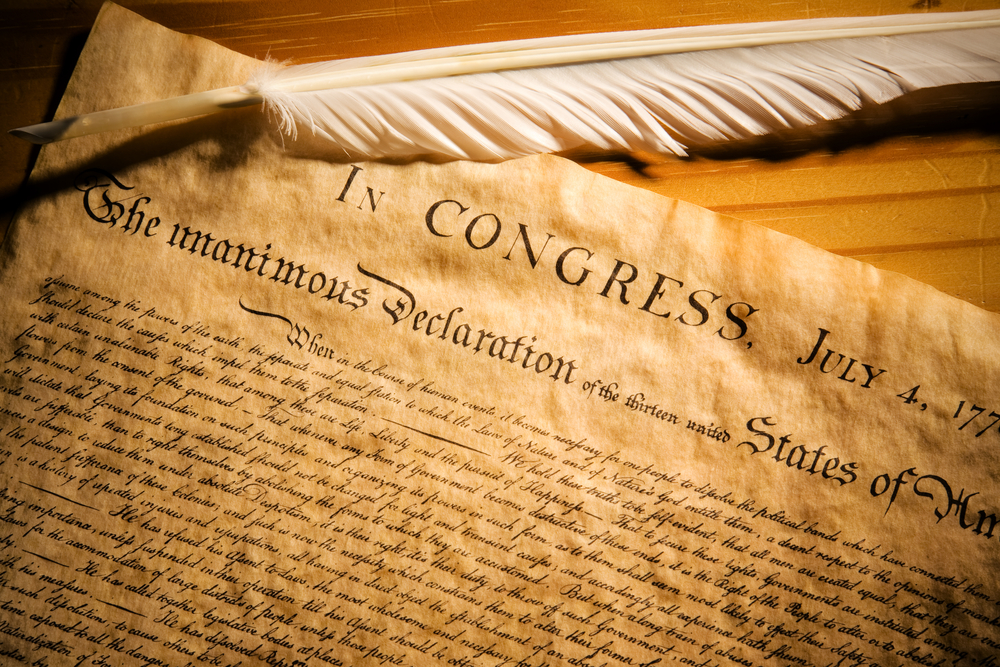 In CONGRESS, July 4, 177
The unanimous Declaration of the thirteen united States of Am
When in the Course of human events it becomes necessary for one people to dissolve the political bands which have connected them
assume among the powers of the earth, the separate and equal station to which the Laws of Nature and of Nature's God entitle them, a decent respect to the opinions of
should declare the causes which impel them to the separation. We hold these truths to be self-evident, that all men are created equal, that they are
with certain unalienable Rights, that among these are Life, Liberty and the pursuit of Happiness. — That to secure these rights, Governments are instituted among
powers from the consent of the governed, — That whenever any Form of Government becomes destructive of these ends, it is the Right of the People to alter or to
Government, laying its foundation on such principles and organizing its powers in such form, as to them shall seem most likely to effect their Safety
will dictate that Governments long established should not be changed for light and transient causes; and accordingly all experience hath
are sufferable, than to right themselves by abolishing the forms to which they are accustomed. But when a long train of abuses
a design to reduce them under absolute Despotism, it is their right, it is their duty, to throw off such Government,
the patient sufferance of these Colonies; and such is now the necessity which constrains them to alter their former
is a history of repeated injuries and usurpations, all having in direct object the establishment of an
He has refused his Assent to Laws, the most wholesome and necessary
importance, unless suspended in their operation till his Assent should be
for the accommodation of large districts of people, unless those people
He has called together legislative bodies at
his measures. He has dissolved Rep